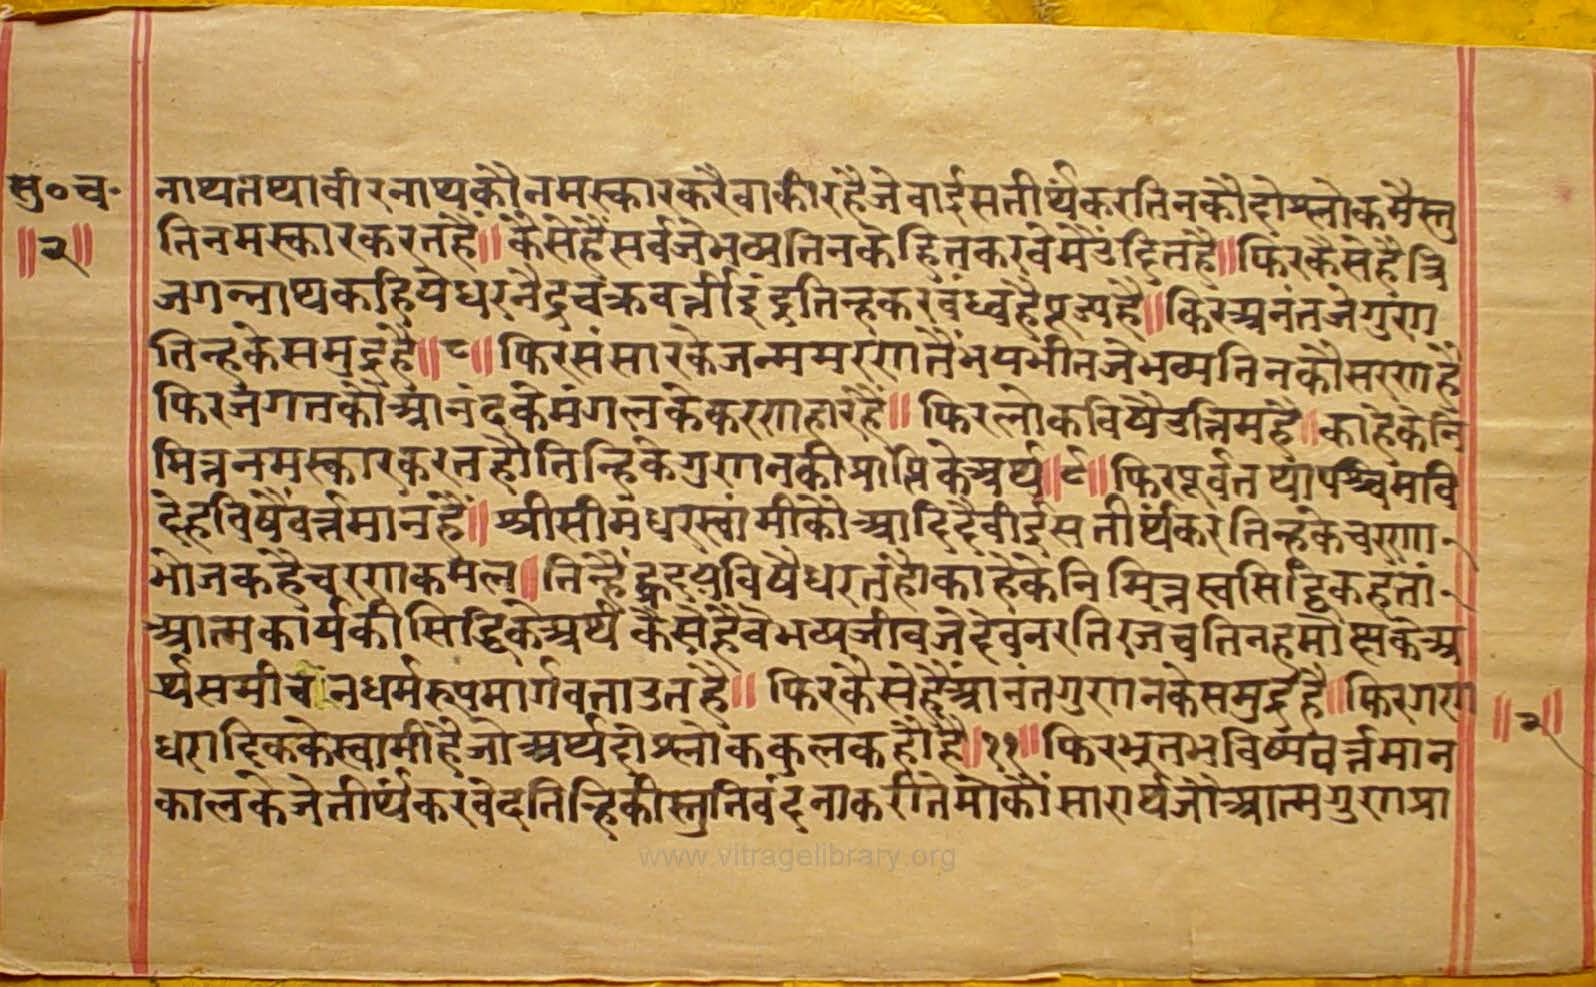 सु०च॰
॥२॥
नाथतथावीरनाथकौनमस्कारकरैवाकीरहैजेवाईसतीर्थकरतिनकौदोश्लोकमैस्तु
तिनमस्कारकरतहैं॥कैसेहैंसर्वजेभव्यतिनकेहितकरवेमैउंद्दितहै॥फिरकैसेहैत्रि
जगन्नाथकहियेधरनैद्रचक्रवर्त्तीइंद्रतिन्हकरवंध्वहैपूज्यहै॥फिरअनंतजेगुंरण
तिन्हकेसमुद्रहै॥८॥फिरसंसारकेजन्ममररणतैंभयभीतजेभव्यतिनकौसररणहैं
फिरजगतकौआनंदकेमंगलकेकररणहारहैं॥फिरलोकविषैउत्तिमहै॥काहेकेनि
मित्तनमस्कारकरतहौतिन्हिकेगुरणनकीप्राप्तिकेअर्थ॥९॥फिरपूर्वतथापश्चिमवि
देहविषैंवर्त्तमानहैं॥श्रीसीमंधरस्वांमीकौआदिदैवीईसतीर्थकरतिन्हकेचररणा-
भोजकहैचररणकमल॥तिन्हैंह्रदयविषैधरतहौकाहेकेनिमित्तस्वसिद्धिकहतां-
आत्मकार्यकीसिद्धिकेअर्थकैसेहैवेभव्यजीवजेदेवनरतिरजचतिनहमोक्षकेअ
र्थसमीचीनधर्मरूपमार्गवताउतहै॥फिरकैसेहैंआनंतगुरणनकेसमुद्रहै॥फिरगरण
धरादिककेस्वामीहैजोअर्थदोश्लोककुलकहौहै॥११॥फिरभूतभविष्यवर्त्तमान
कालकेजेतीर्थकरवेदतिन्हिकीस्तुतिवंदनाकरीतेमोकौंसारार्थजोआत्मगुरणप्रा
॥२॥
www.vitragelibrary.org